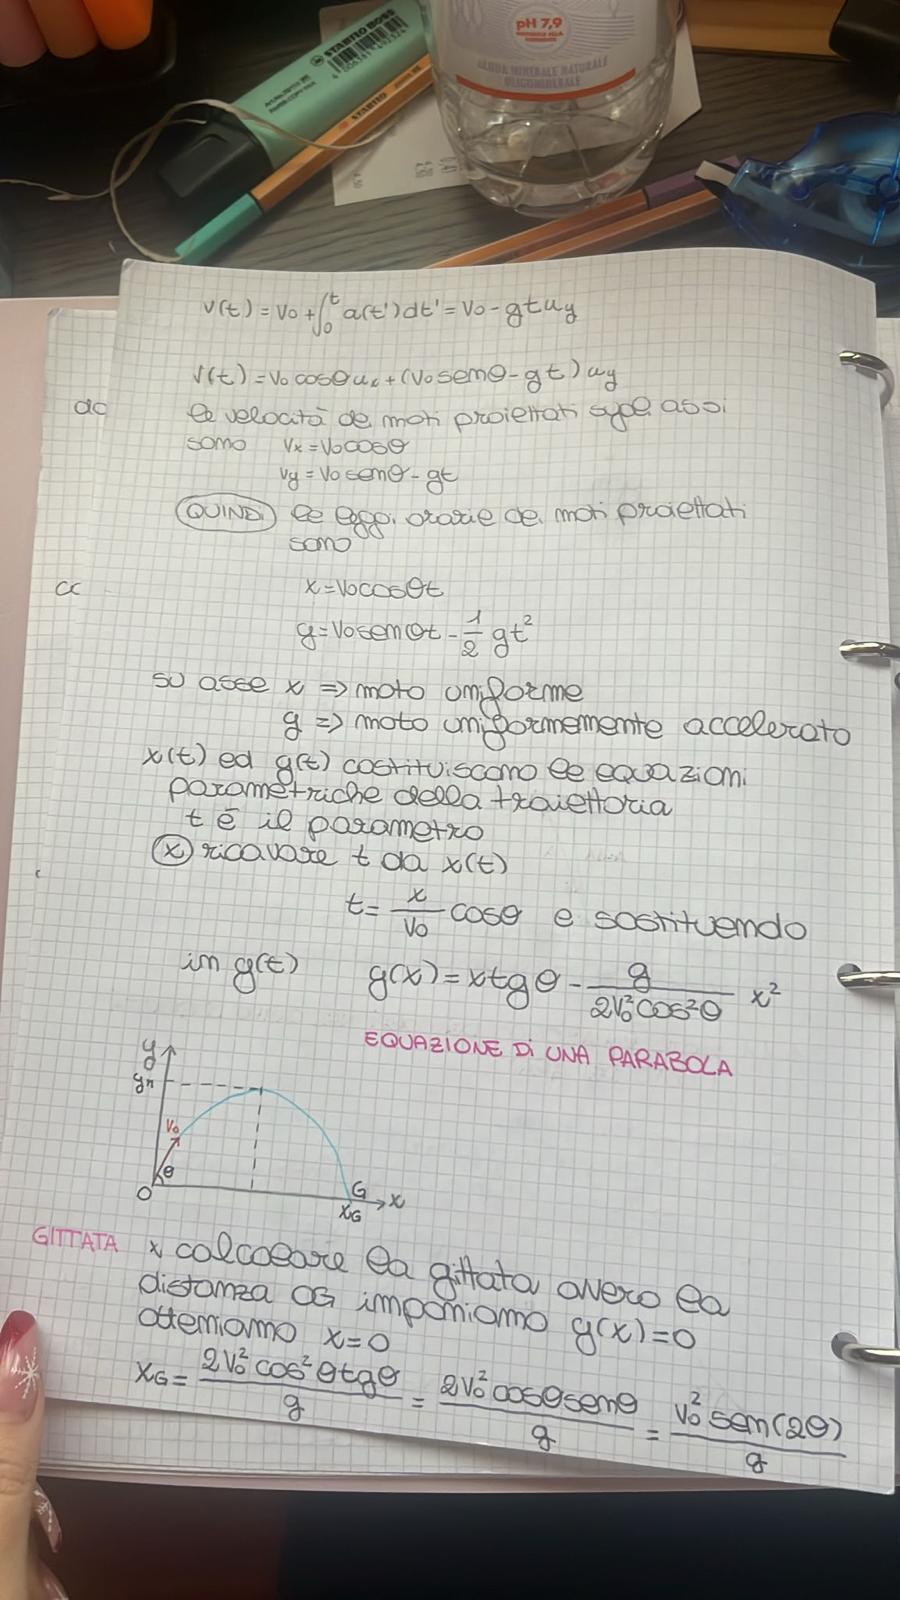 STABILO BOSS
STABILO
pH 7,9
ACQUA MINERALE NATURALE
OLIGOMINERALE
v(t) = v₀ + ∫₀ᵗ a(t')dt' = v₀ - gtuy
v(t) = v₀cosθux + (v₀senθ - gt)uy
le velocità dei moti proiettati sugli assi
sono vx = v₀cosθ
vy = v₀senθ - gt
QUINDI le eqqi. orarie dei moti proiettati
sono
x = v₀cosθt
y = v₀senθt - 1/2 gt²
su asse x => moto uniforme
y => moto uniformemente accelerato
x(t) ed y(t) costituiscono le equazioni
parametriche della traiettoria
t è il parametro
x ricavare t da x(t)
t = x/v₀ cosθ e sostituendo
in y(t) y(x) = xtgθ - g/2v₀²cos²θ x²
EQUAZIONE Di UNA PARABOLA
y
yM
v₀
θ
O
G
x
xG
GITTATA x calcolare la gittata ovvero la
distanza OG imponiamo y(x) = 0
otteniamo x = 0
xG = 2v₀²cos²θtgθ/g = 2v₀²cosθsenθ/g = v₀²sen(2θ)/g